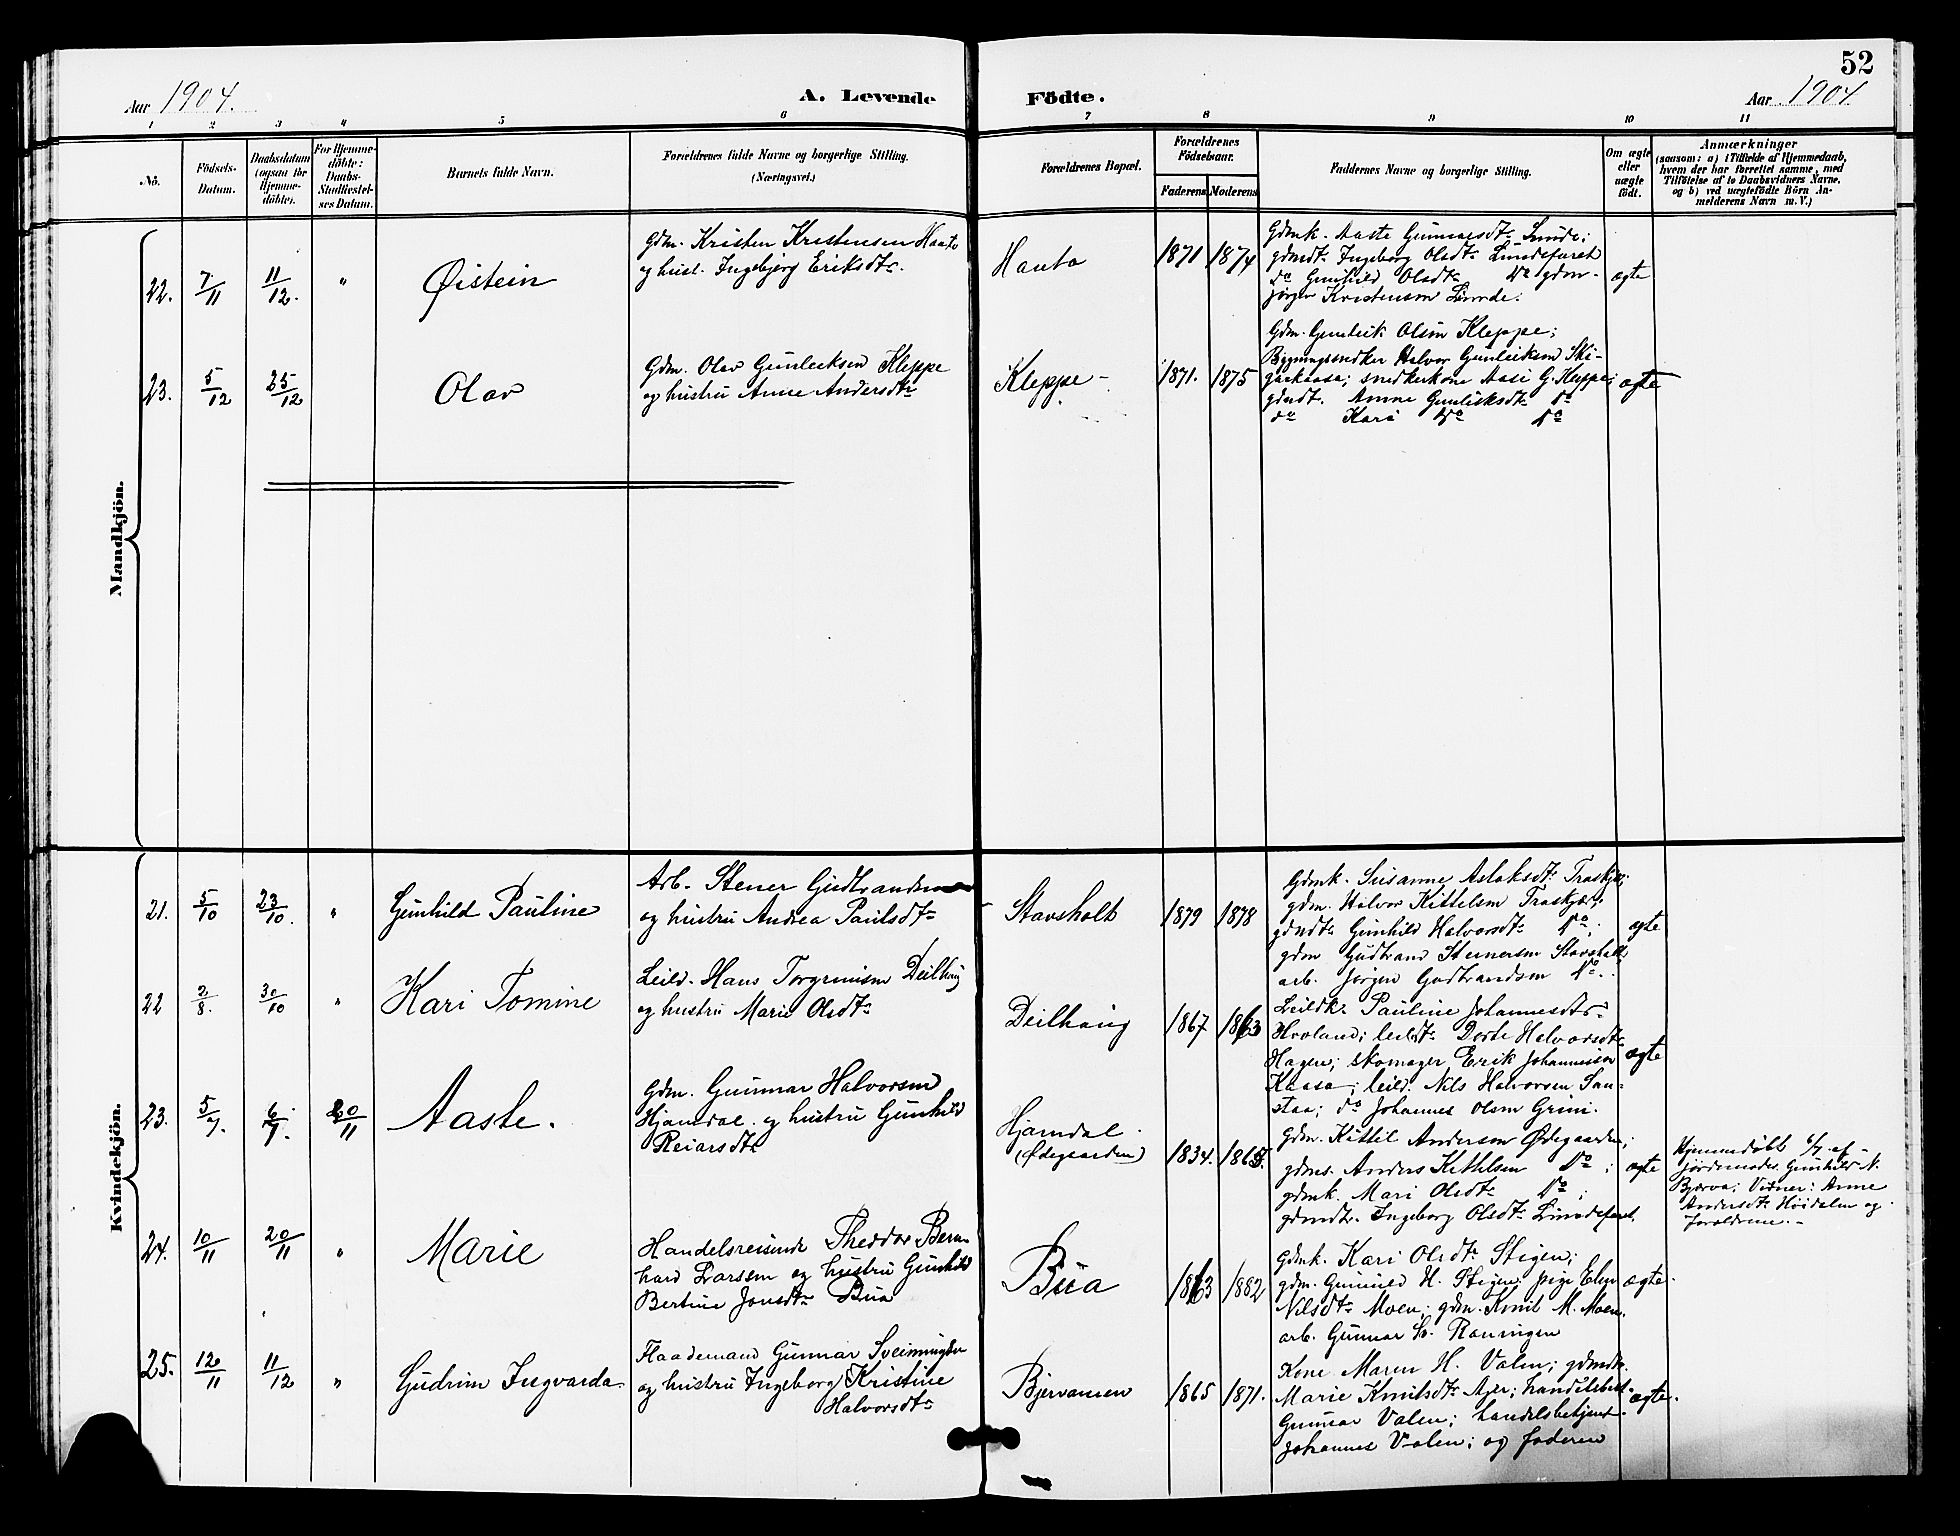 52
Aar 1904.
A. Levende Födte.
Aar 1904
1 2 3 4 5 6 7 8 9 10 11
No.
Födsels-
Datum.
Daabsdatum
(ogsaa for
Hjemme-
döbte).
For Hjemme-
döbte:
Daabs-
Stadfæstel-
ses Datum.
Barnets fulde Navn.
Forældrenes fulde Navne og borgerlige Stilling.
(Næringsvei.)
Forældrenes Bopæl.
Forældrenes
Födselsaar.
Faderens
Moderens
Faddernes Navne og borgerlige Stilling.
Om ægte
eller
uægte
födt.
Anmærkninger
(saasom: a) i Tilfælde af Hjemmedaab,
hvem der har forrettet samme, med
Tilföielse af to Daabsvidners Navne,
og b) ved uægtefödte Börn An-
melderens Navn m. V.)
Mandkjön.
22. 7/11 11/12. " Øistein
Gdm. Kristen Kristensen Hauto
og hust. Ingebjørg Eriksdtr.
Hauto
1871 1874
Gdmk. Aaste Gunnarsdtr. Linnde;
gdmdt. Ingeborg Olsdtr. Lindefaret
do Gunhild Olsdtr do gdm.
Jørgen Kristensen Linnde.
ægte
23. 5/12 25/12 Olav
Gdm. Olav Gunleiksen Kleppe
og hustru Anne Andersdtr
Kleppe
1871. 1875
Gdm. Gunleik Olsen Kleppe;
Bygningssnedker Halvor Gunleiksen Ski-
garkaasa; snedkerkone Aase G. Kleppe;
gdmdt. Anne Gunleiksdtr do
do Kari do do
ægte
Kvindekjön.
21. 5/10 23/10. " Gunhild Pauline
Arb. Stener Gudbrandsen
og hustru Andrea Paulsdtr
Stavsholt
1879 1878
Gdmk. Susanne Aslaksdtr. Traskjær;
gdm. Halvor Kittelsen Traskjær;
gdmdtr Gunhild Halvorsdtr do;
gdm Gudbrand Stenersen Stavsholt
arb. Jørgen Gudbrandsen do.
ægte
22 2/8. 30/10 " Kari Tomine
Leild. Hans Torgrimsen Deilhaug
og hustru Marie Olsdtr
Deilhaug
1867 1863
Leildk. Pauline Johannesdtr
Hvoland; leildt. Dorte Halvorsdtr
Hagen; skomager Erik Johannesen
Kaasa; leild. Nils Halvorsen San-
staa; do Johannes Olsen Grini.
ægte
23. 5/7. 6/7. 20/11 Aaste.
Gdm. Gunnar Halvorsen
Hjarndal og hustru Gunhild
Reiarsdtr
Hjarndal.
(Ødegaarden)
1834. 1865.
Gdm. Kittil Andersen Ødegaarden;
gdms. Anders Kittilsen do;
gdmk. Mari Olsdtr do;
gdmdtr. Ingeborg Olsdtr Linndefaret.
ægte
Hjemmedøbt 6/7 af
jordemoder Gunhild N.
Bjørva; Vidner: Anne
Andersdtr Høidalen og
forældrene.
24. 10/11 20/11 " Marie
Handelsreisende Theodor Bern-
hard Larssen og hustru Gunhild
Bertine Jonsdtr Bua
Bua
1863 1882
Gdmk. Kari Olsdtr Stigen;
gdm. Gunnuld H. Stigen; pige Elen
Nilsdtr Moen; gdm. Knut M. Moen.
arb. Gunnar S. Rauningen
ægte.
25. 12/11 11/12 " Gudrun Ingvarda
Flaademand Gunnar Sveinungsen
og hustru Ingeborg Kristine
Halvorsdtr
Bjervamoen
1865 1871.
Kone Maren H. Valen; gdmdtr.
Marie Knutsdtr Ajer; handelsbest.
Gunnar Valen; handelsbetjent
Johannes Valen; og faderen
ægte.